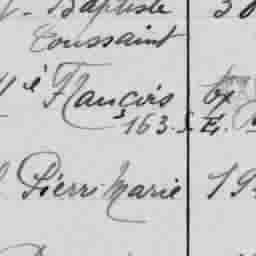 Baptiste 30
Toussaint
François
163. S. E.
Pierre Marie 19